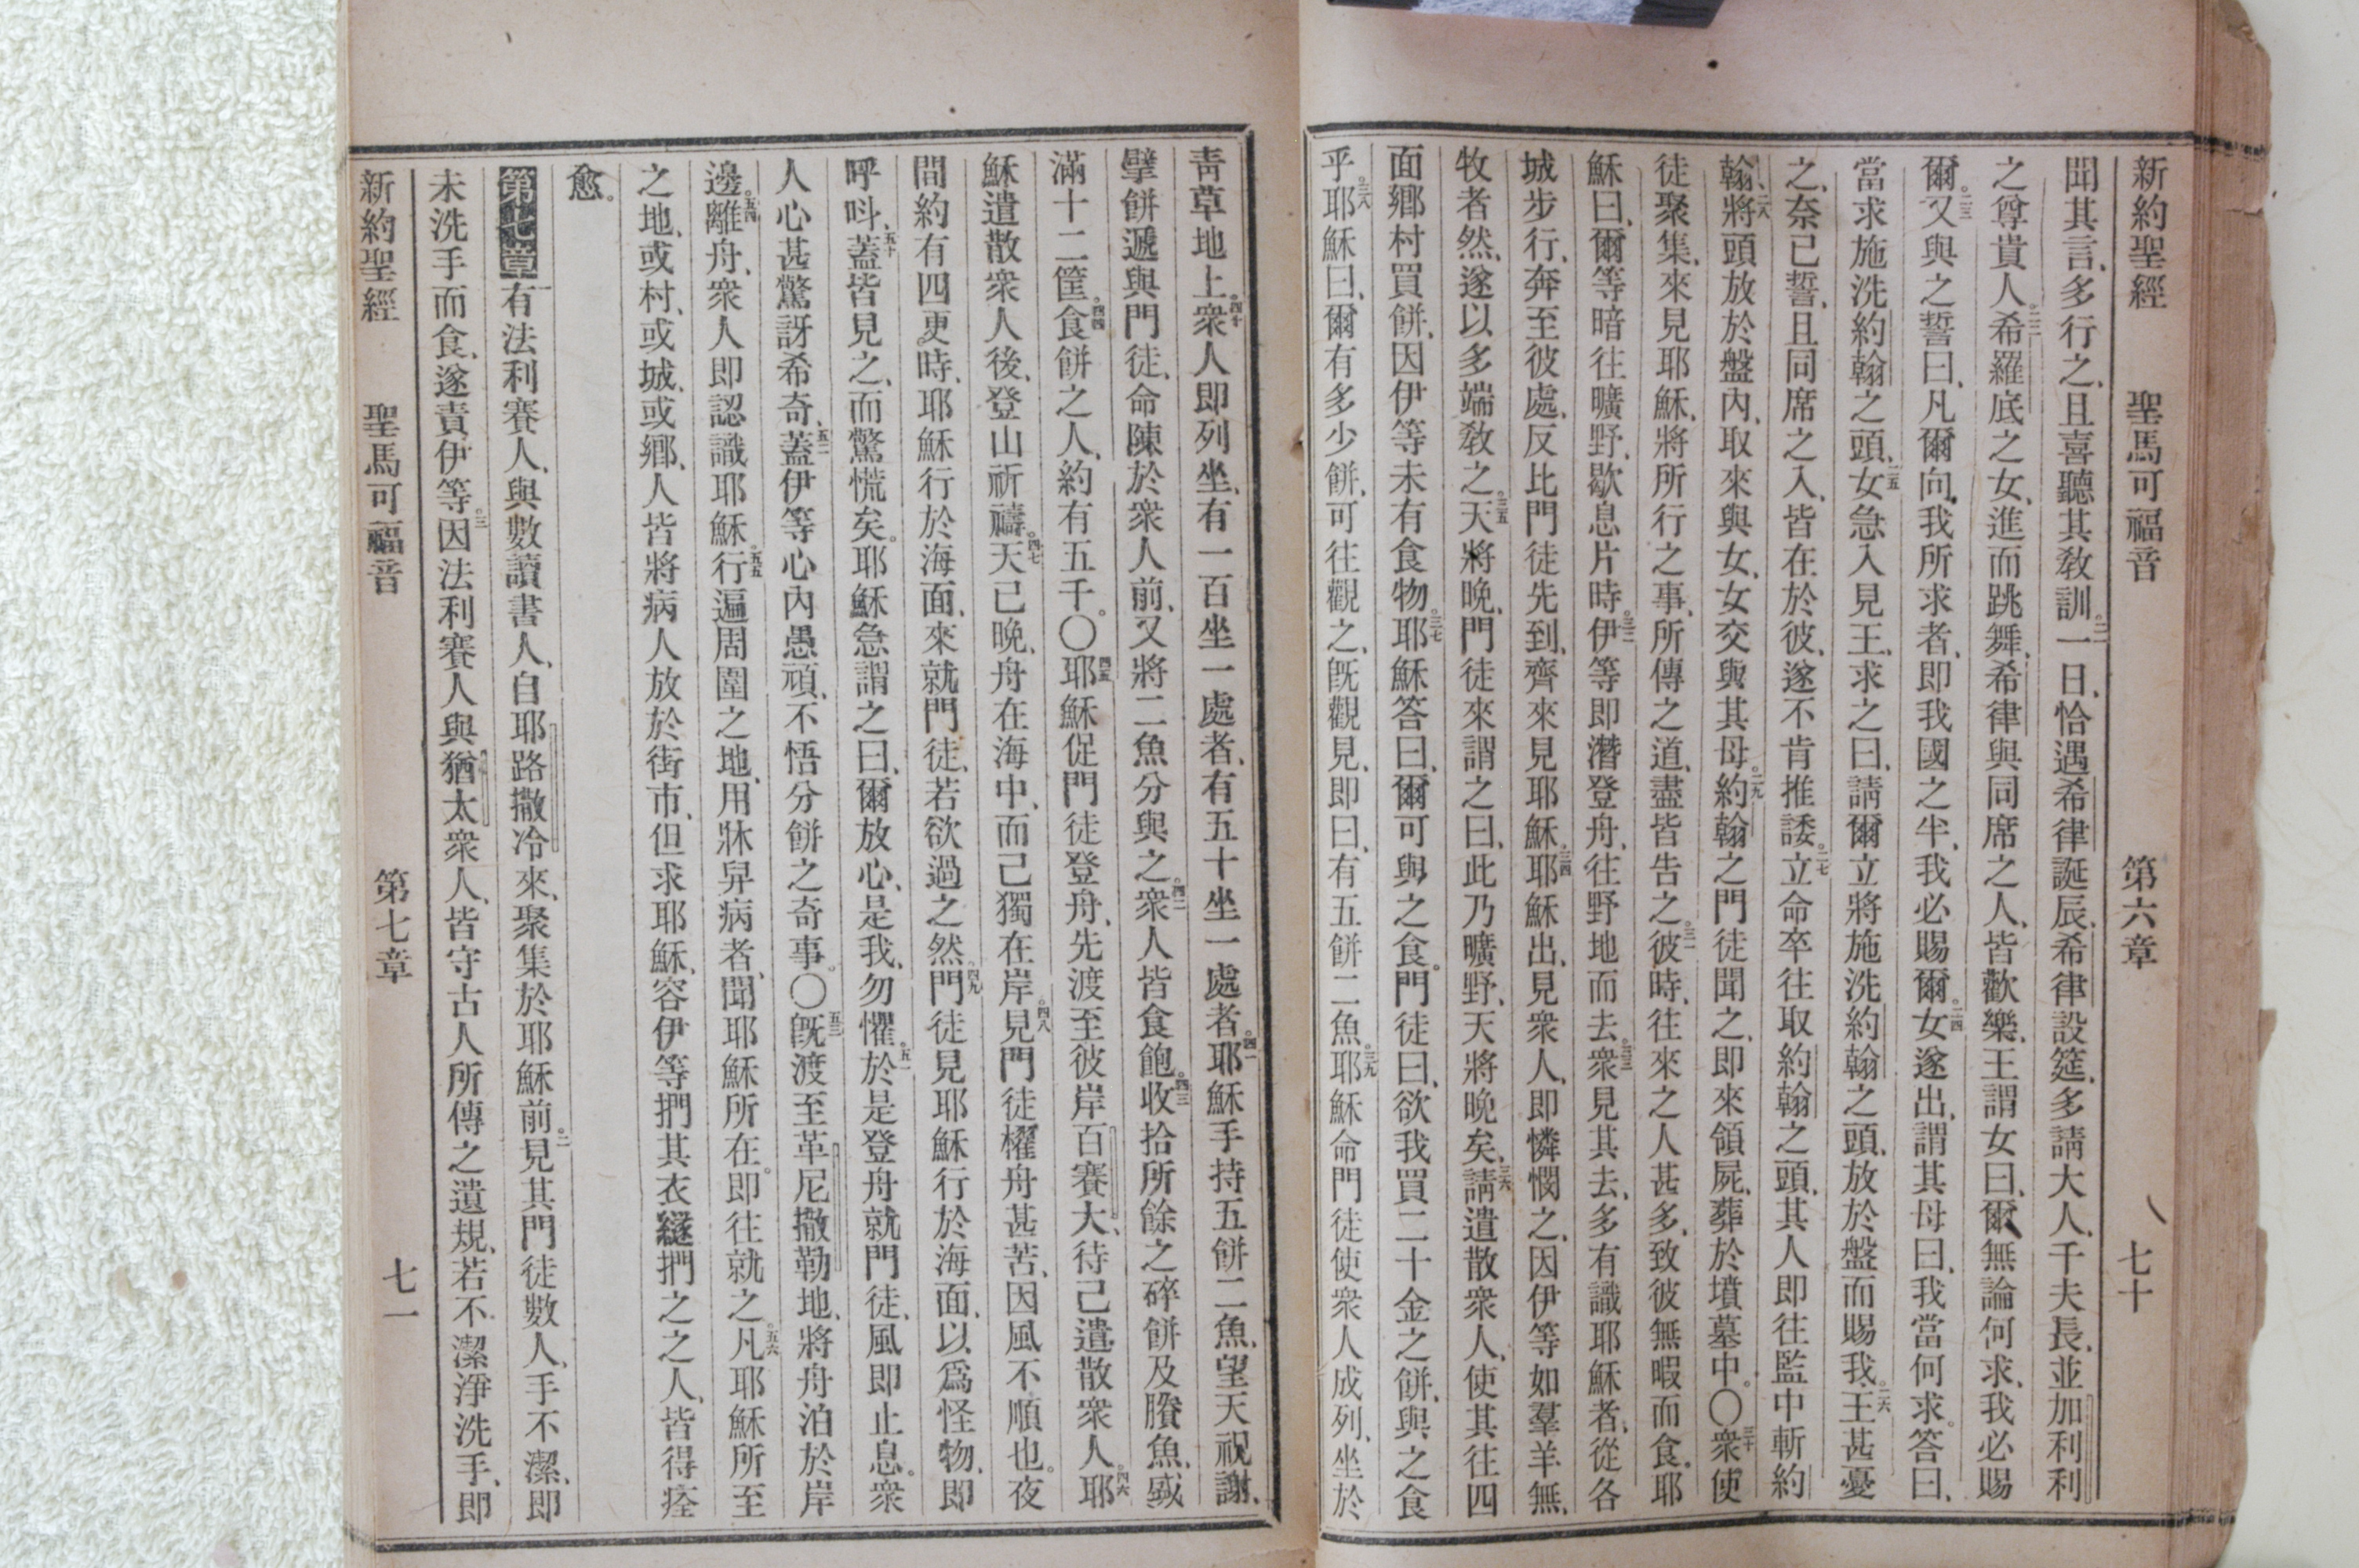 新約聖經　聖馬可福音　第六章　七十
聞其言、多行之、且喜聽其教訓。二一一日、恰遇希律誕辰、希律設筵、多請大人、千夫長、並加利利
之尊貴人。二二希羅底之女、進而跳舞、希律與同席之人、皆歡樂、王謂女曰、爾無論何求、我必賜
爾。二三又與之誓曰、凡爾向我所求者、即我國之半、我必賜爾。二四女遂出、謂其母曰、我當何求。答曰、
當求施洗約翰之頭、二五女急入見王、求之曰、請爾立將施洗約翰之頭、放於盤而賜我。二六王甚憂
之、奈已誓、且同席之入、皆在於彼、遂不肯推諉。二七立命卒往取約翰之頭、其人即往監中斬約
翰、二八將頭放於盤內、取來與女、女交與其母。二九約翰之門徒聞之、即來領屍、葬於墳墓中。〇三十衆使
徒聚集、來見耶穌、將所行之事、所傳之道、盡皆告之。三一彼時、往來之人甚多、致彼無暇而食。耶
穌曰、爾等暗往曠野、歇息片時。三二伊等即潛登舟、往野地而去。三三衆見其去、多有識耶穌者、從各
城步行、奔至彼處、反比門徒先到、齊來見耶穌。三四耶穌出、見衆人、即憐憫之、因伊等如羣羊無
牧者然、遂以多端教之。三五天將晚、門徒來謂之曰、此乃曠野、天將晚矣、三六請遣散衆人、使其往四
面鄉村買餅、因伊等未有食物。三七耶穌答曰、爾可與之食。門徒曰、欲我買二十金之餅、與之食
乎。三八耶穌曰、爾有多少餅、可往觀之、旣觀見、即曰、有五餅二魚。三九耶穌命門徒使衆人成列、坐於
靑草地上。四十衆人即列坐、有一百坐一處者、有五十坐一處者。四一耶穌手持五餅二魚、望天祝謝、
擘餅遞與門徒、命陳於衆人前、又將二魚分與之。四二衆人皆食飽。四三收拾所餘之碎餅及賸魚、盛
滿十二筐。四四食餅之人、約有五千。〇四五耶穌促門徒登舟、先渡至彼岸百賽大、待己遣散衆人。四六耶
穌遣散衆人後、登山祈禱。四七天已晚、舟在海中、而己獨在岸。四八見門徒櫂舟甚苦、因風不順也。夜
間約有四更時、耶穌行於海面、來就門徒、若欲過之然。四九門徒見耶穌行於海面、以爲怪物、即
呼呌、五十蓋皆見之、而驚慌矣。耶穌急謂之曰、爾放心、是我、勿懼。五一於是登舟就門徒、風即止息。衆
人心甚驚訝希奇、五二蓋伊等心內愚頑、不悟分餅之奇事。〇五三旣渡至革尼撒勒地、將舟泊於岸
邊。五四離舟、衆人即認識耶穌。五五行遍周圍之地、用牀舁病者、聞耶穌所在。即往就之。五六凡耶穌所至
之地、或村、或城、或鄉、人皆將病人放於街市、但求耶穌、容伊等捫其衣繸、捫之之人、皆得痊
愈。
第七章有法利賽人、與數讀書人、自耶路撒冷來、聚集於耶穌前。二見其門徒數人、手不潔、即
未洗手而食、遂責伊等。三因法利賽人與猶太衆人、皆守古人所傳之遺規、若不潔淨洗手、即
新約聖經　聖馬可福音　第七章　七一